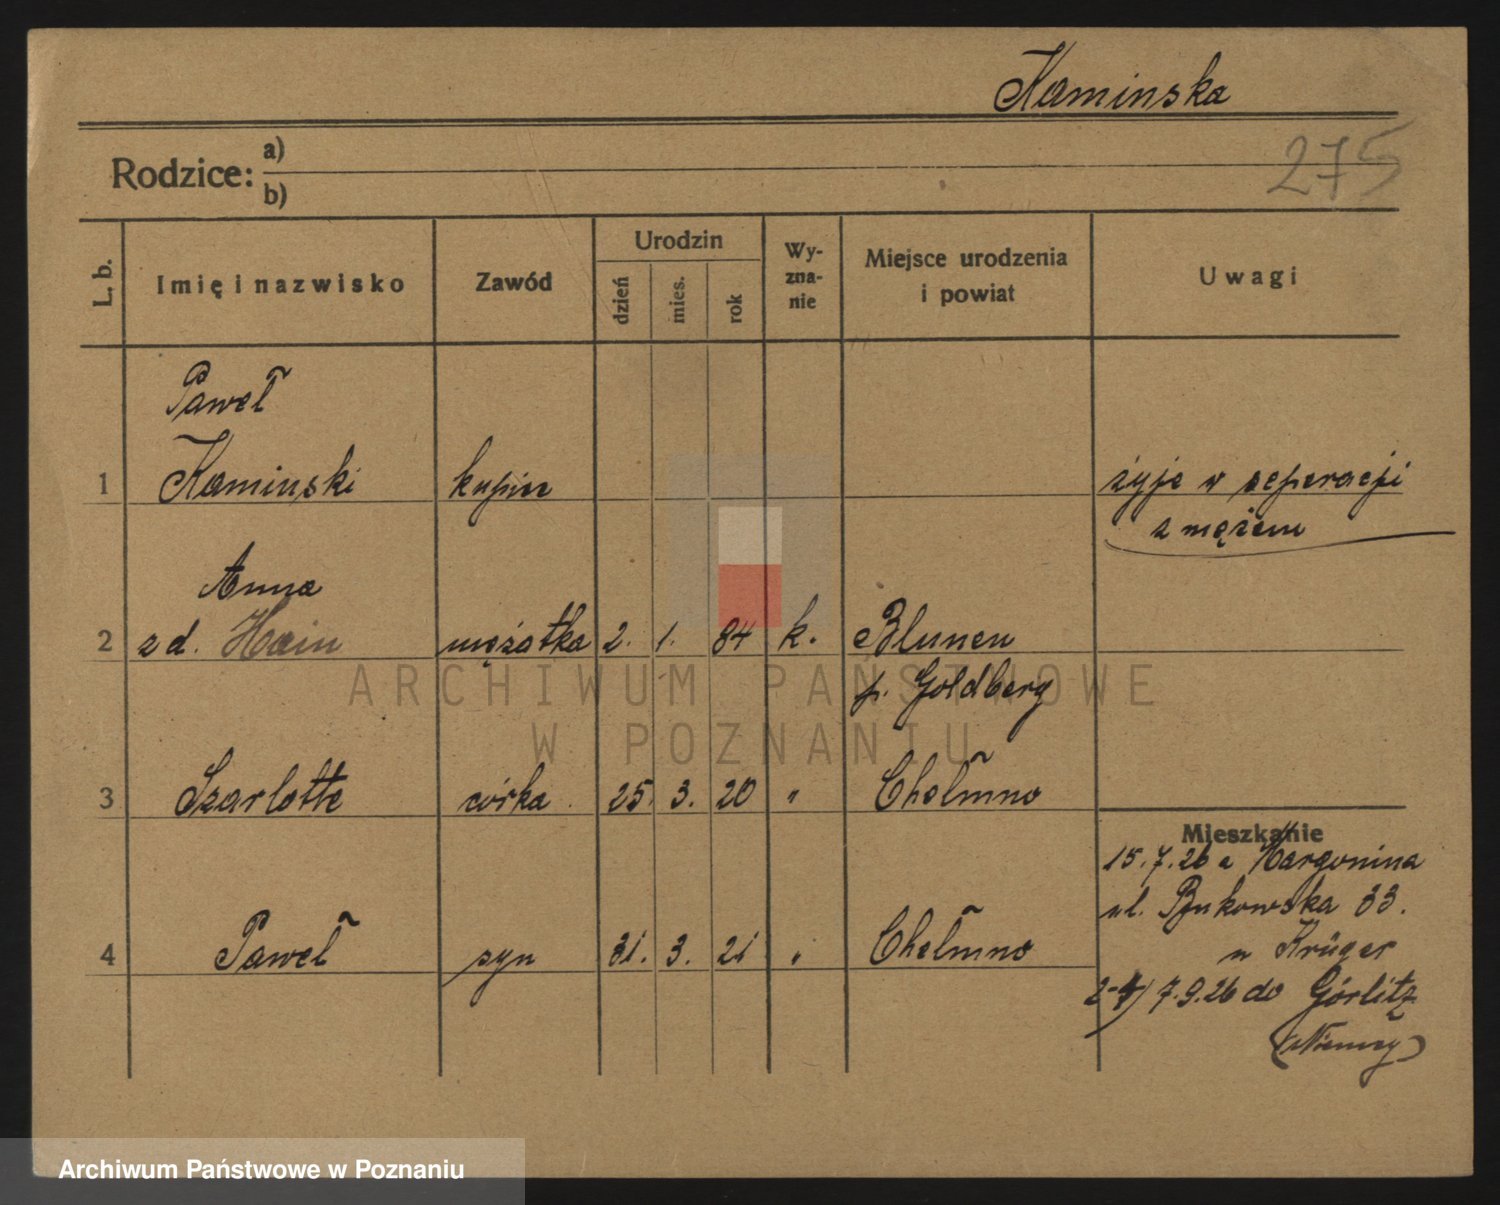 Kaminska
275
Rodzice: a)
b)
L. b.
Imię i nazwisko
Zawód
Urodzin
dzień
mies.
rok
Wy-
zna-
nie
Miejsce urodzenia
i powiat
Uwagi
Paweł
1 Kaminski kupiec żyje w seperacji
z mężem
Anna
2 z d. Hain mężatka 2. 1. 84 k. Blumen
p. Goldberg
3 Szarlotte córka 25. 3. 20 " Chełmno
Mieszkanie
15.7.26 z Margonina
ul. Bukowska 33.
u Krüger
4 Paweł syn 31. 3. 21 " Chełmno
2-4) 7.9.26 do Görlitz
(Niemcy)
ARCHIWUM PAŃSTWOWE
W POZNANIU
Archiwum Państwowe w Poznaniu